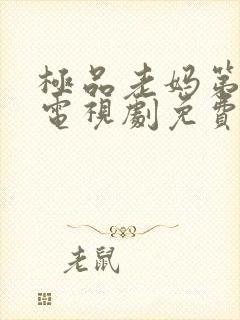 極品老媽第
電視劇免費
老鼠